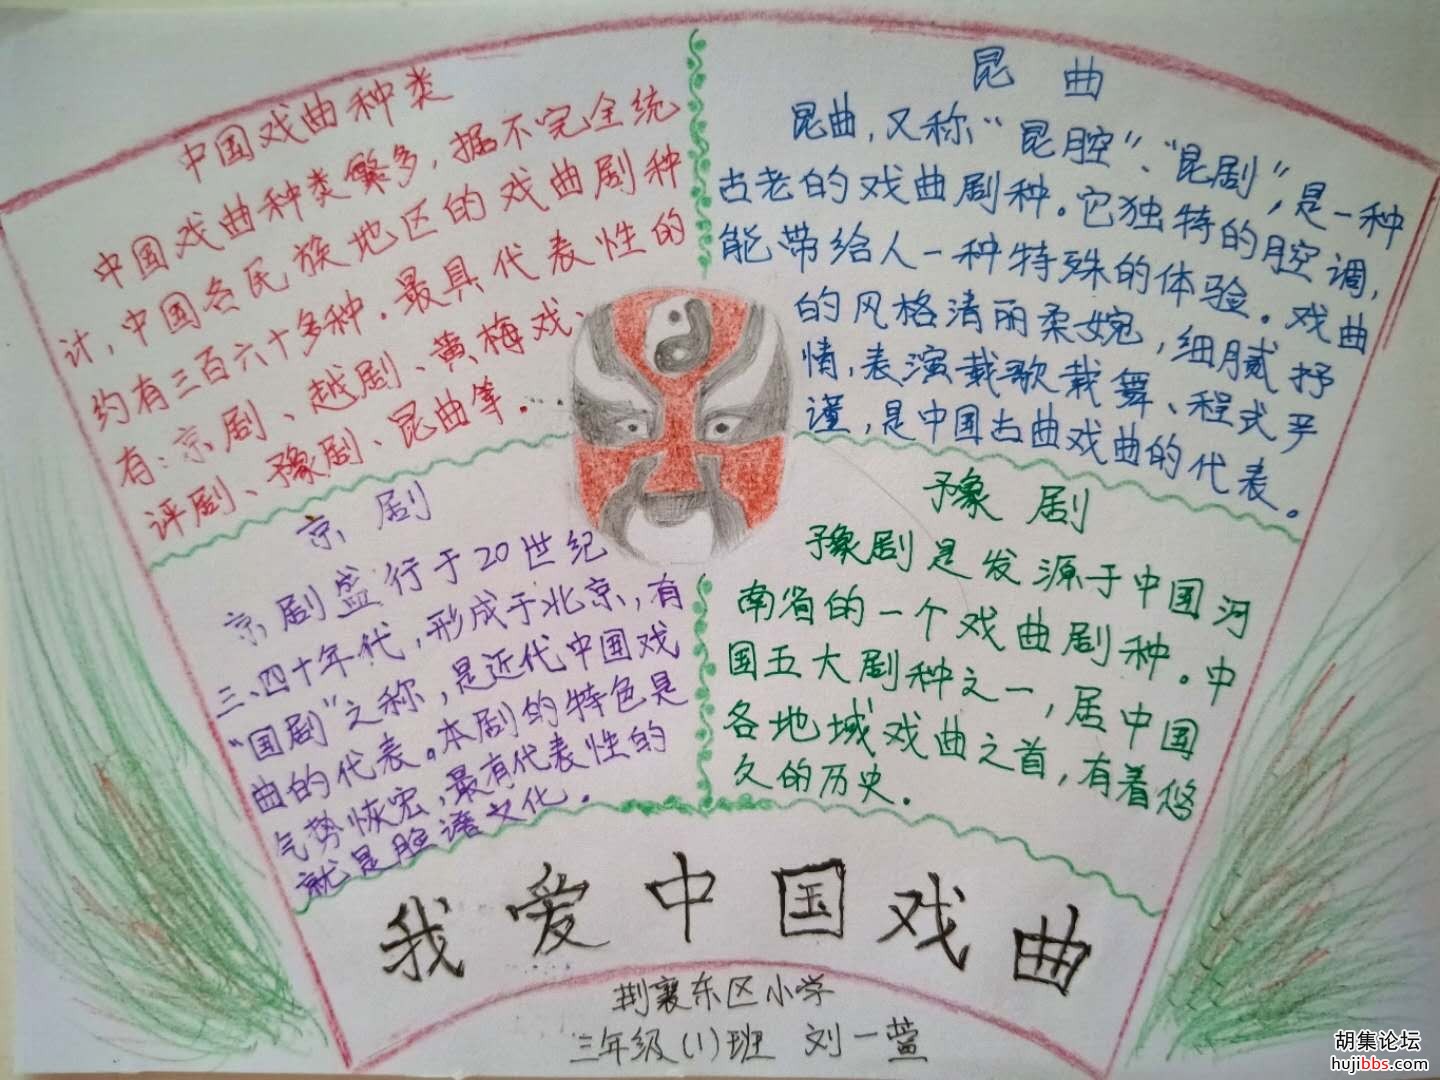 中国戏曲种类
中国戏曲种类繁多，据不完全统
计，中国各民族地区的戏曲剧种
约有三百六十多种．最具代表性的
有：京剧、越剧、黄梅戏、
评剧、豫剧、昆曲等．
昆曲
昆曲，又称“昆腔”、“昆剧”，是一种
古老的戏曲剧种。它独特的腔调，
能带给人一种特殊的体验。戏曲
的风格清丽柔婉，细腻抒
情，表演载歌载舞、程式严
谨，是中国古曲戏曲的代表。
京剧
京剧盛行于20世纪
三、四十年代，形成于北京，有
“国剧”之称，是近代中国戏
曲的代表。本剧的特色是
气势恢宏，最有代表性的
就是脸谱文化．
豫剧
豫剧是发源于中国河
南省的一个戏曲剧种。中
国五大剧种之一，居中国
各地域戏曲之首，有着悠
久的历史．
我爱中国戏曲
荆襄东区小学
三年级(1)班 刘一萱
胡集论坛
hujibbs.com